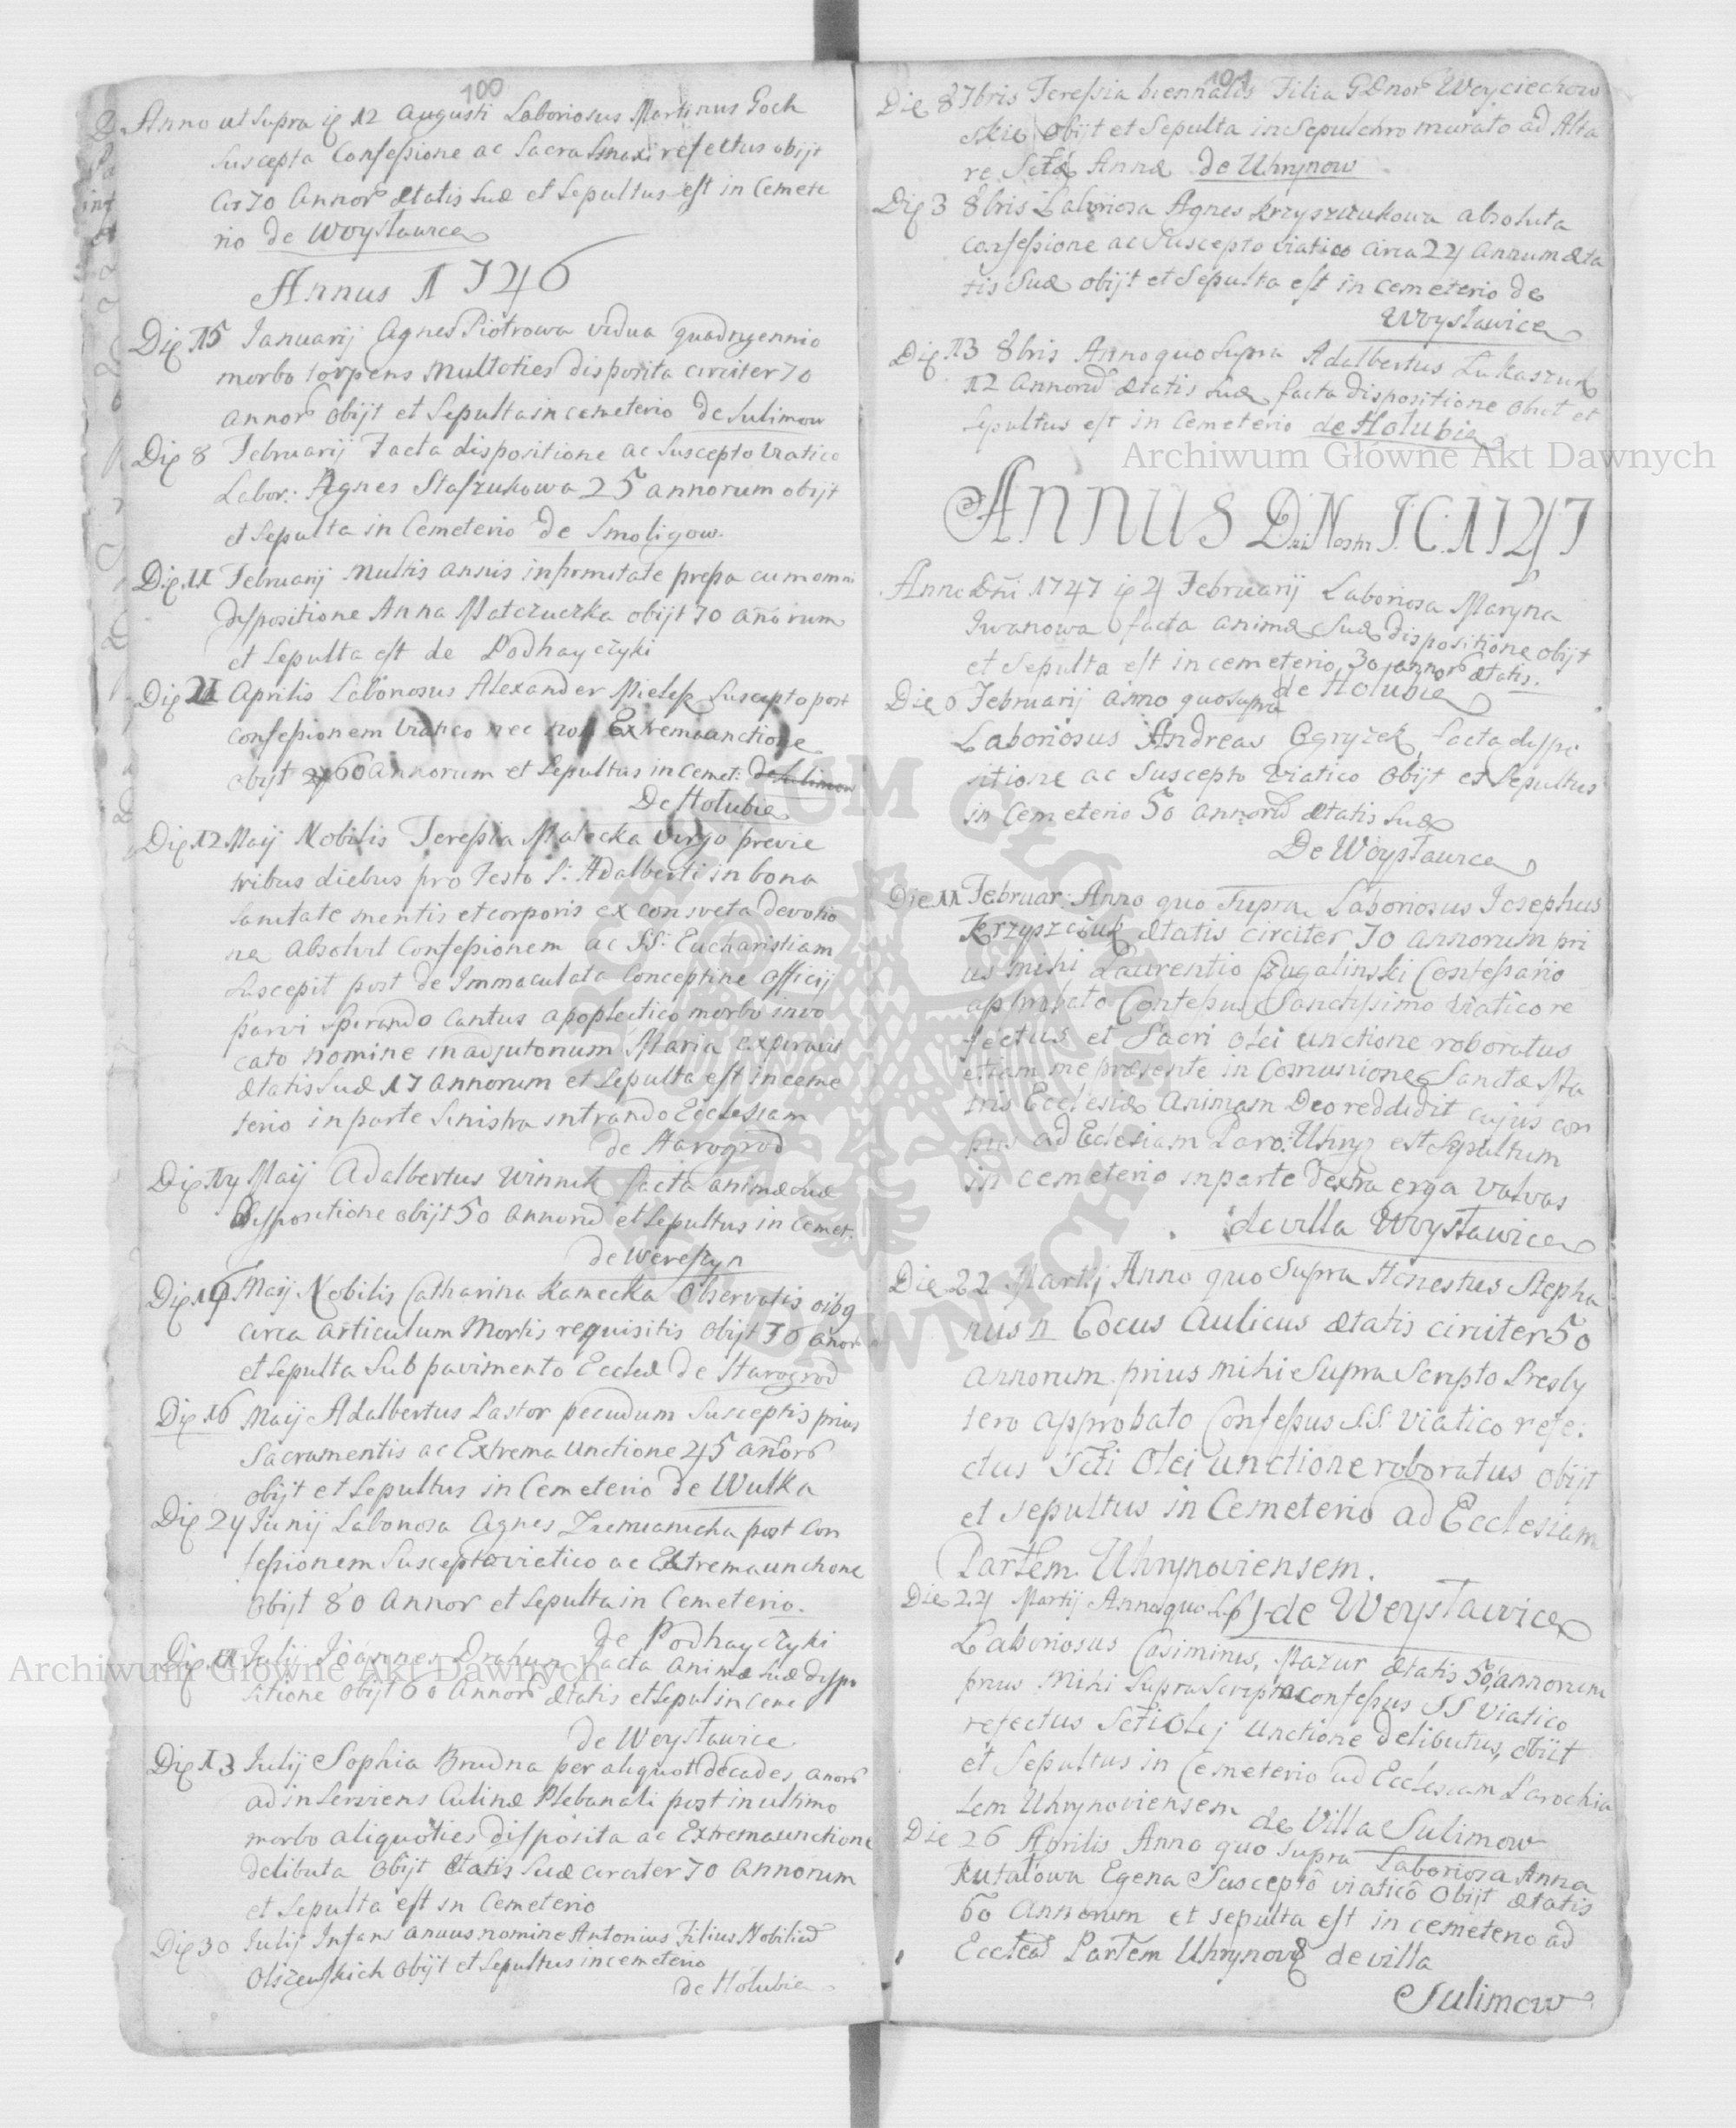 100
Anno ut Supra ię 12 Augusti Laboriosus Martinus Goch
Suscepta Confessione ac Sacra Sinaxi refectus obijt
Cir 70 Annor ætatis Suæ et Sepultus est in Cemete
rio de Woysławice
Annus 1746
Die 15 Januarij Agnes Piotrowa vidua quadryennio
morbo torpens multoties disposita circiter 70
annor obijt et Sepulta in cemeterio de Sulimow
Die 8 Februarij Facta dispositione ac Suscepto viatico
Labor: Agnes Staszukowa 25 annorum obijt
et Sepulta in Cemeterio de Smoligow.
Die 11 Februarij multis annis infirmitate pressa cum omni
dispositione Anna Matczuczka obijt 70 anorum
et Sepulta est de Podhayczyki
Die 21 Aprilis Laboriosus Alexander Suscepto post
confessionem viatico nec non Extremaunctione
obijt 60 annorum et Sepultus in Cemet: de Sulimow
De Hołubie
Die 12 Maij Nobilis Teressia Małecka virgo previe
tribus diebus pro Festo S: Adalberti in bona
Sanitate mentis et corporis ex consveta devotio
ne absolvit Confessionem ac SS: Eucharistiam
Suscepit post de Immaculata Conceptine Officij
parvi Spirando Cantus apoplectico morbo invo
cato nomine in adjutorium Maria expiravit
ætatis Suæ 17 annorum et Sepulta est in ceme
terio in parte Sinistra intrando Ecclesiam
de Starogrod
Die 14 Maij Adalbertus Winnik facta animæ suæ
dispositione obijt 50 annoru et Sepultus in Cemet:
de Wereszyn
Die Maij Nobilis Catharina Kamecka Observatis oibg
circa articulum Mortis requisitis obijt 70 anor
et Sepulta Sub pavimento Eccleæ de Starogrod
Die 16 Maij Adalbertus Pastor pecudum Susceptis prius
Sacramentis ac Extrema Unctione 45 anor
obijt et Sepultus in Cemeterio de Wulka
Die 24 Junij Laboriosa Agnes Ziemianicha post Con
fessionem Suscepto viatico ac Extremaunctione
obijt 80 Annor et Sepulta in Cemeterio.
de Podhayczyki
Die Julij Joannes Drahun facta Animæ suæ dispo
sitione obijt 60 Annor ætatis et Sepul in Ceme
de Woysławice
Die 13 Julij Sophia Brudna per aliquot decades anor
adinserviens Culinæ Plebanali post in ultimo
morbo aliquoties disposita ac Extremaunctione
delibuta obijt ætatis Suæ circiter 70 annorum
et Sepulta est in Cemeterio
Die 30 Julij Infans anuus nomine Antonius Filius Nobiliu
Olszewskich obijt et Sepultus in cemeterio
de Hołubie
101
Die 8 7bris Teressia biennalis Filia GDnor Woyciechow
skie obijt et Sepulta in Sepulchro murato ad Alta
re Sctæ Annæ de Uhrynow
Die 3 8bris Laboriosa Agnes Krzyszczukowa absoluta
confessione ac Suscepto viatico circa 24 annum æta
tis Suæ obijt et Sepulta est in cemeterio de
Woysławice
Die 13 8bris Anno quo Supra Adalbertus Łukaszuk
12 Annoru ætatis Suæ facta dispositione obiit et
Sepultus est in Cemeterio de Hołubie
ANNUS Dni Nostri J.C. 1747
Anno Dni 1747 ię 4 Februarij Laboriosa Maryna
Iwanowa facta animæ suæ dispositione obijt
et Sepulta est in cemeterio 30 annor ætatis.
de Hołubie
Die 6 Februarij anno quo supra
Laboriosus Andreas Ogryzek, facta dispo
sitione ac Suscepto Viatico Obijt et Sepultus
in Cemeterio 50 annoru ætatis Suæ
De Woysławice
Die 11 Februar: Anno quo Supra Laboriosus Josephus
Krzyszczuk ætatis circiter 70 annorum pri
us mihi Laurentio Czugalinski Confessario
approbato Confessus Sanctissimo viatico re
fectus et Sacri olei unctione roboratus
etiam me præsente in Comunione Sanctæ Ma
tris Ecclesiæ Animam Deo reddidit cujus cor
pus ad Eclesiam Paro: Uhryn est Sepultum
in cemeterio in parte dextra erga valvas
de villa Woysławice
Die 22 Martij Anno quo Supra Honestus Stepha
nus n Cocus Aulicus ætatis circiter 50
annorum prius mihi Supra Scripto Presby
tero approbato Confessus S.S. viatico refe:
ctus Scti Olei unctione roboratus obijt
et sepultus in Cemeterio ad Ecclesiam
Partem Uhrynoviensem.
de Woysławice
Die 24 Martij Anno quo
Laboriosus Casimirus, Mazur ætatis 50 annorum
prius mihi Supra Scripto confessus SS viatico
refectus Scti Olej unctione delibutus, obiit
et Sepultus in Cemeterio ad Ecclesiam Parochia
lem Uhrynoviensem de Villa Sulimow
Die 26 Aprilis Anno quo supra Laboriosa Anna
Kutałowa Egena Susceptô viaticô Obijt ætatis
60 Annorum et sepulta est in cemeterio ad
Eccleă Partem Uhrynov de villa
Sulimow
Archiwum Główne Akt Dawnych
Archiwum Główne Akt Dawnych
ARCHIWUM GŁÓWNE AKT DAWNYCH